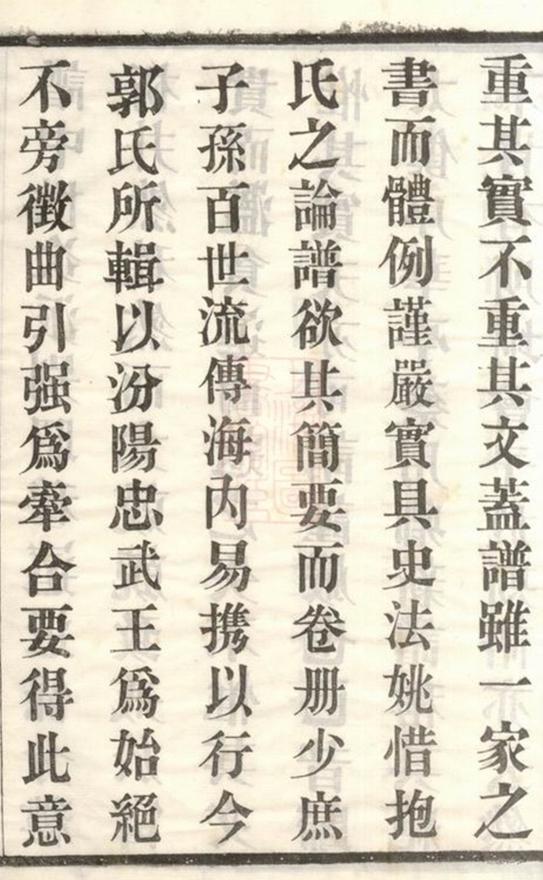 重其實不重其文蓋譜雖一家之
書而體例謹嚴實具史法姚惜抱
氏之論譜欲其簡要而卷册少庶
子孫百世流傳海内易攜以行今
郭氏所輯以汾陽忠武王爲始絕
不旁徵曲引强爲牽合要得此意